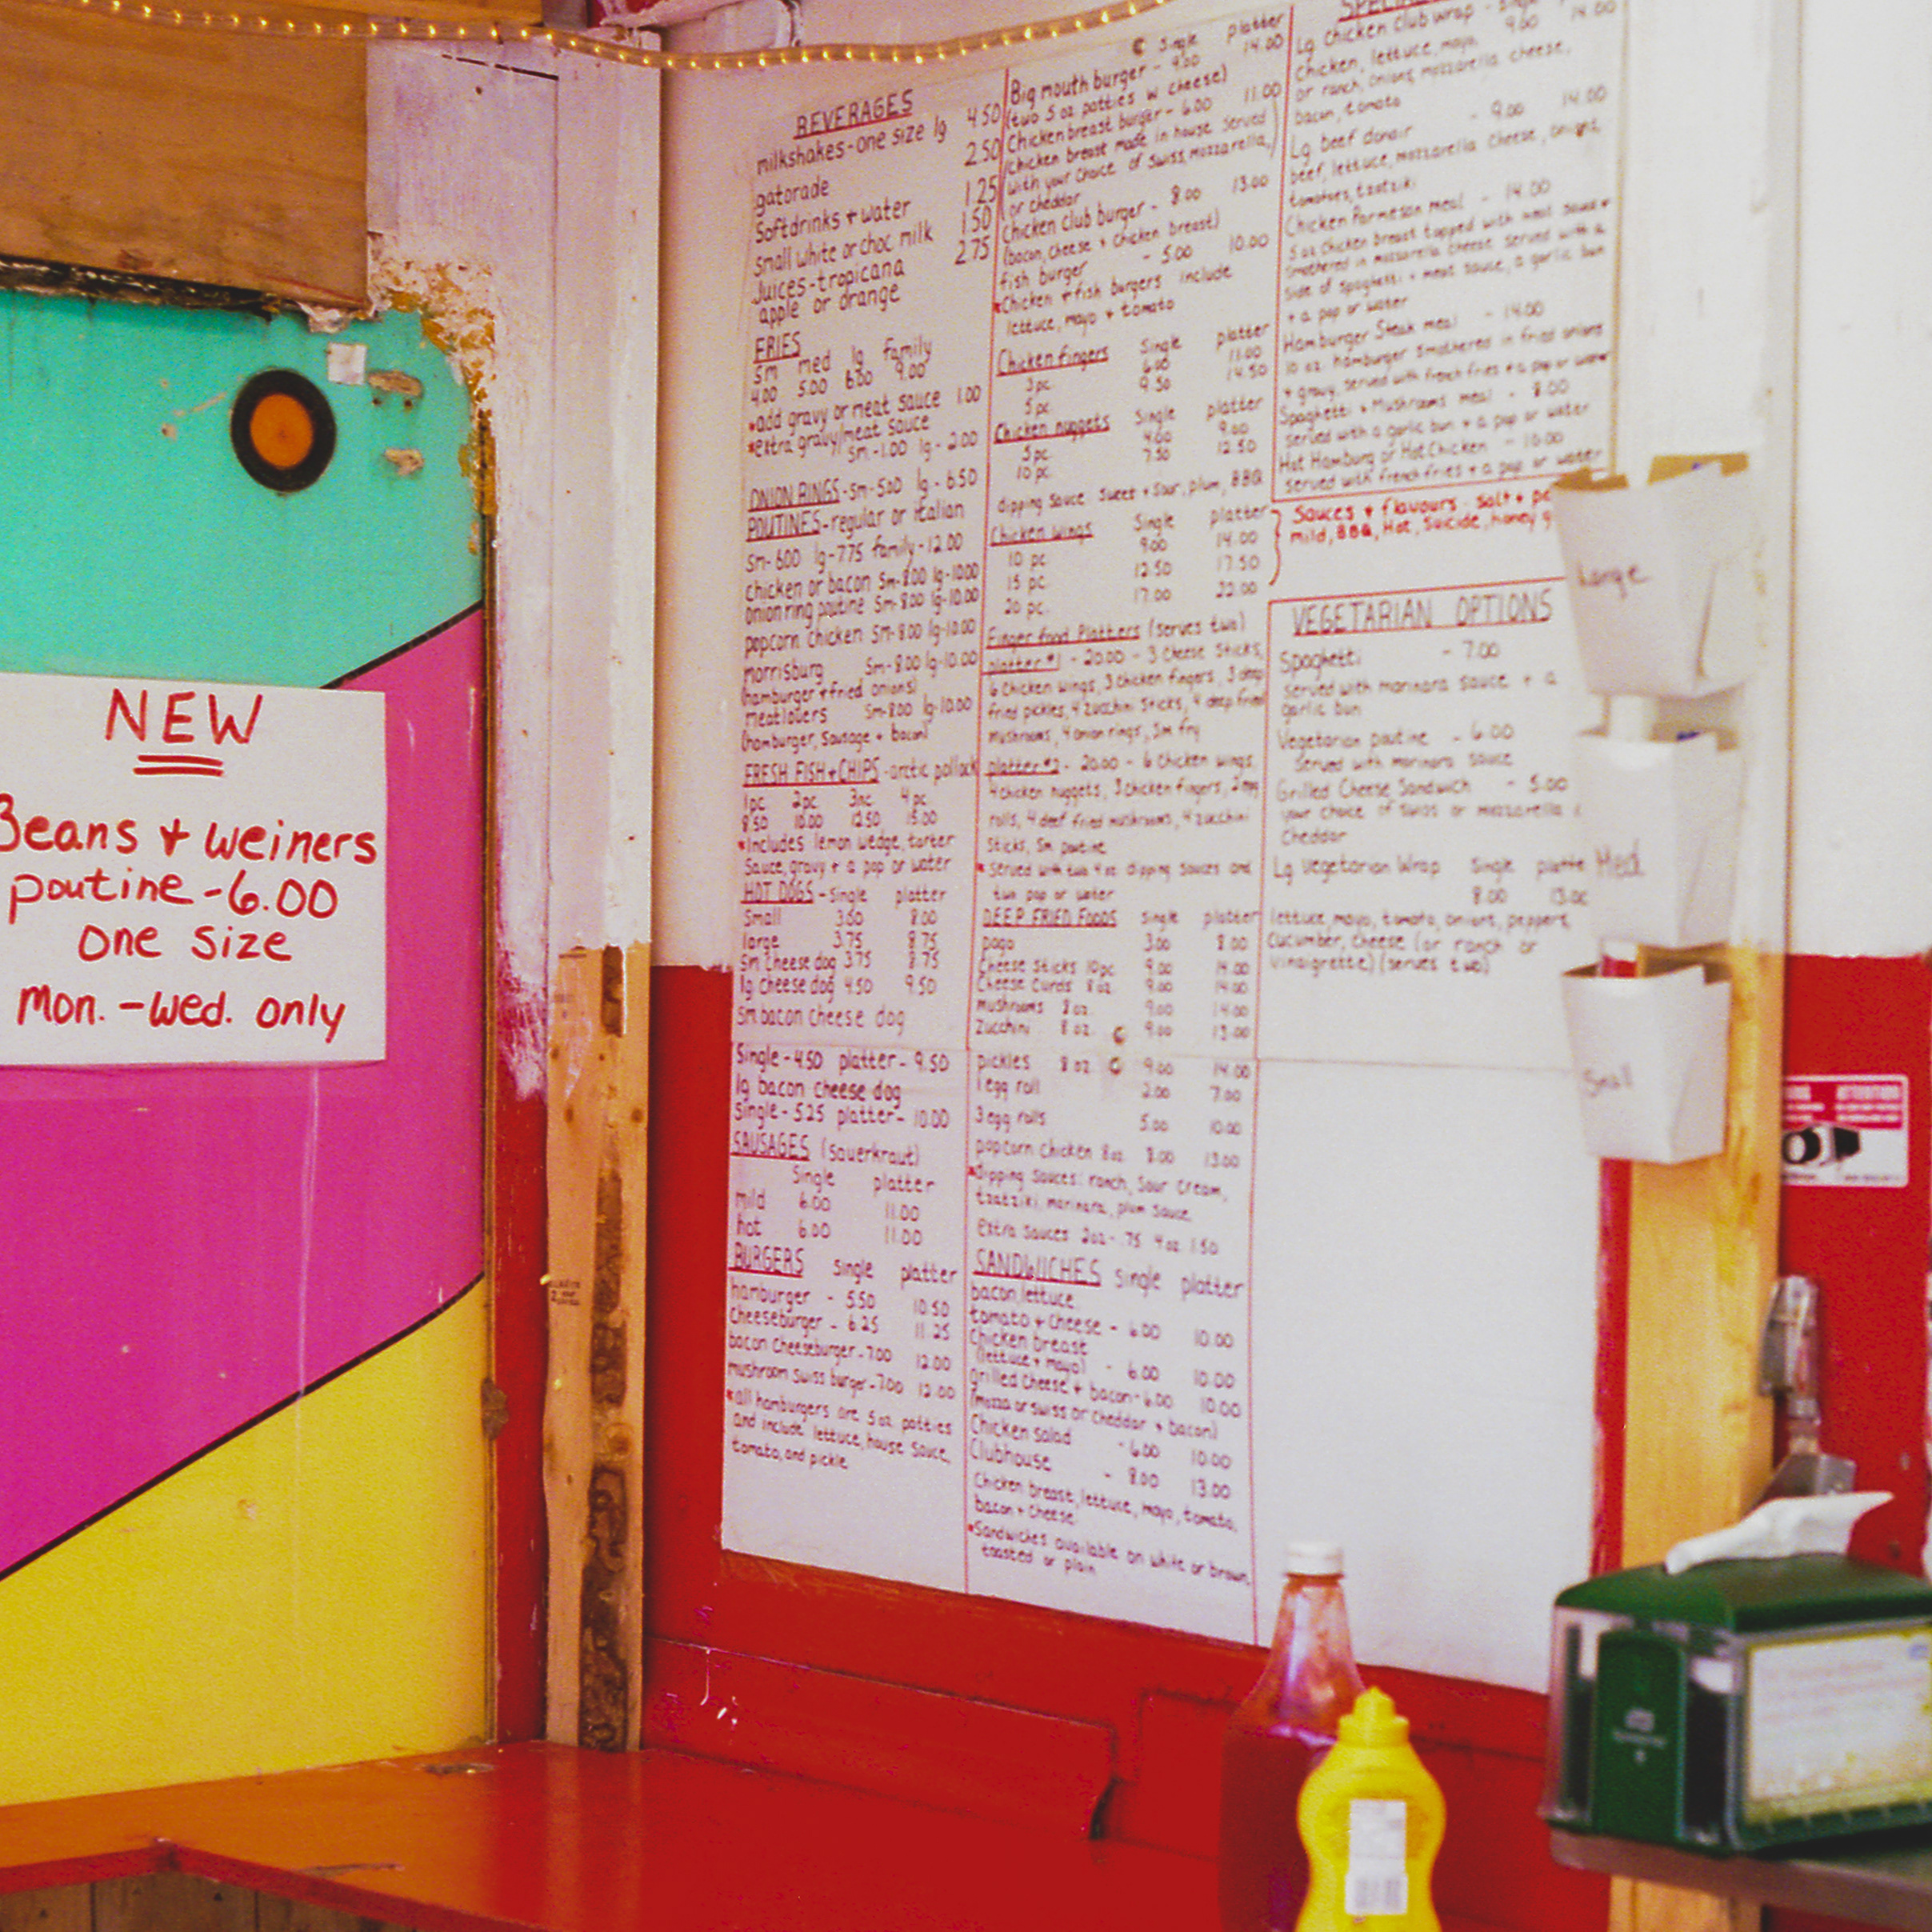 NEW
Beans + weiners
poutine -6.00
one size
mon. -wed. only
BEVERAGES
milkshakes - one size lg 4.50
gatorade 2.50
softdrinks + water 1.25
small white or choc milk 1.50
Juices - tropicana 2.75
apple or orange
FRIES
sm med lg family
4.00 5.00 6.00 9.00
*add gravy or meat sauce 1.00
*extra gravy/meat sauce
sm -1.00 lg - 2.00
ONION RINGS - sm- 5.00 lg - 6.50
POUTINES - regular or italian
sm- 6.00 lg- 7.75 family - 12.00
chicken or bacon sm- 8.00 lg - 10.00
onion ring poutine sm- 8.00 lg- 10.00
popcorn chicken sm- 8.00 lg- 10.00
morrisburg sm- 8.00 lg- 10.00
(hamburger + fried onions)
meatlovers sm- 8.00 lg- 10.00
(hamburger, sausage + bacon)
FRESH FISH + CHIPS - arctic pollock
1pc 2pc 3pc 4pc
8.50 10.00 12.50 15.00
*includes lemon wedge, tarter
sauce, gravy + a pop or water
HOT DOGS - single platter
Small 3.00 8.00
large 3.75 8.75
sm cheese dog 3.75 8.75
lg cheese dog 4.50 9.50
sm bacon cheese dog
Single - 4.50 platter - 9.50
lg bacon cheese dog
single - 5.25 platter - 10.00
SAUSAGES (sauerkraut)
Single platter
mild 6.00 11.00
hot 6.00 11.00
BURGERS single platter
hamburger - 5.50 10.50
Cheeseburger - 6.25 11.25
bacon cheeseburger - 7.00 12.00
mushroom swiss burger - 7.00 12.00
*all hamburgers are 5 oz patties
and include lettuce, house sauce,
tomato, and pickle
Single platter
Big mouth burger - 9.00 14.00
(two 5 oz patties w cheese)
Chicken breast burger - 6.00 11.00
(chicken breast made in house served
with your choice of swiss, mozzarella,
or cheddar)
Chicken club burger - 8.00 13.00
(bacon, cheese + chicken breast)
fish burger - 5.00 10.00
*Chicken + fish burgers include
lettuce, mayo + tomato
Chicken fingers Single platter
3pc 6.00 11.00
5pc 9.50 14.50
Chicken nuggets Single platter
5pc 4.00 9.00
10 pc 7.50 12.50
dipping sauce sweet + sour, plum, BBQ
Chicken wings Single platter
10 pc 9.00 14.00
15 pc 12.50 17.50
20 pc 17.00 22.00
Finger food Platters (serves two)
platter #1 - 20.00 - 3 cheese sticks,
6 Chicken wings, 3 chicken fingers, 3 deep
fried pickles, 4 zucchini sticks, 4 deep fried
mushrooms, 4 onion rings, sm fry
platter #2 - 20.00 - 6 chicken wings,
4 chicken nuggets, 3 chicken fingers, 2 egg
rolls, 4 deef fried mushrooms, 4 zucchini
sticks, sm poutine
*Served with two 4 oz dipping sauces and
two pop or water
DEEP FRIED FOODS single platter
pogo 3.00 8.00
Cheese Sticks 10pc 9.00 14.00
Cheese Curds 8 oz 9.00 14.00
mushrooms 8 oz. 9.00 14.00
Zucchini 8 oz. 9.00 13.00
pickles 8 oz 9.00 14.00
1 egg roll 2.00 7.00
3 egg rolls 5.00 10.00
popcorn chicken 8oz 8.00 13.00
*dipping sauces: ranch, sour cream,
tzatziki, marinara, plum sauce
extra sauces 2oz - .75 4 oz 1.50
SANDWICHES Single platter
bacon, lettuce
tomato + cheese - 6.00 10.00
Chicken breast
(lettuce + mayo) - 6.00 10.00
grilled cheese + bacon - 6.00 10.00
(mozza or swiss or cheddar + bacon)
Chicken salad - 6.00 10.00
Clubhouse - 8.00 13.00
Chicken breast, lettuce, mayo, tomato,
bacon + cheese
*Sandwiches available on white or brown,
toasted or plain
Lg chicken club wrap - 9.00 14.00
Chicken, lettuce, mayo,
or ranch, onions, mozzarella cheese,
bacon, tomato
Lg beef donair - 9.00 14.00
beef, lettuce, mozzarella cheese, onions,
tomatoes, tzatziki
Chicken Parmesan meal - 14.00
5 oz chicken breast topped with meat sauce +
smothered in mozzarella cheese served with a
side of spaghetti + meat sauce, a garlic bun
+ a pop or water
Hamburger Steak meal - 14.00
10 oz. hamburger smothered in fried onions
+ gravy, served with french fries + a pop or water
Spaghetti + Mushrooms meal - 8.00
served with a garlic bun + a pop or water
Hot Hamburg or Hot Chicken - 10.00
served with french fries + a pop or water
Sauces + flavours - salt +
mild, BBQ, Hot, Suicide, honey
VEGETARIAN OPTIONS
Spaghetti - 7.00
served with marinara sauce + a
garlic bun
Vegetarian poutine - 6.00
served with marinara sauce
Grilled Cheese Sandwich - 5.00
your choice of swiss or mozzarella
Cheddar
Lg Vegetarian Wrap Single platte
8.00 13.00
lettuce, mayo, tomato, onions, peppers,
cucumber, cheese (or ranch or
vinaigrette) (serves two)
Large
Med
Small